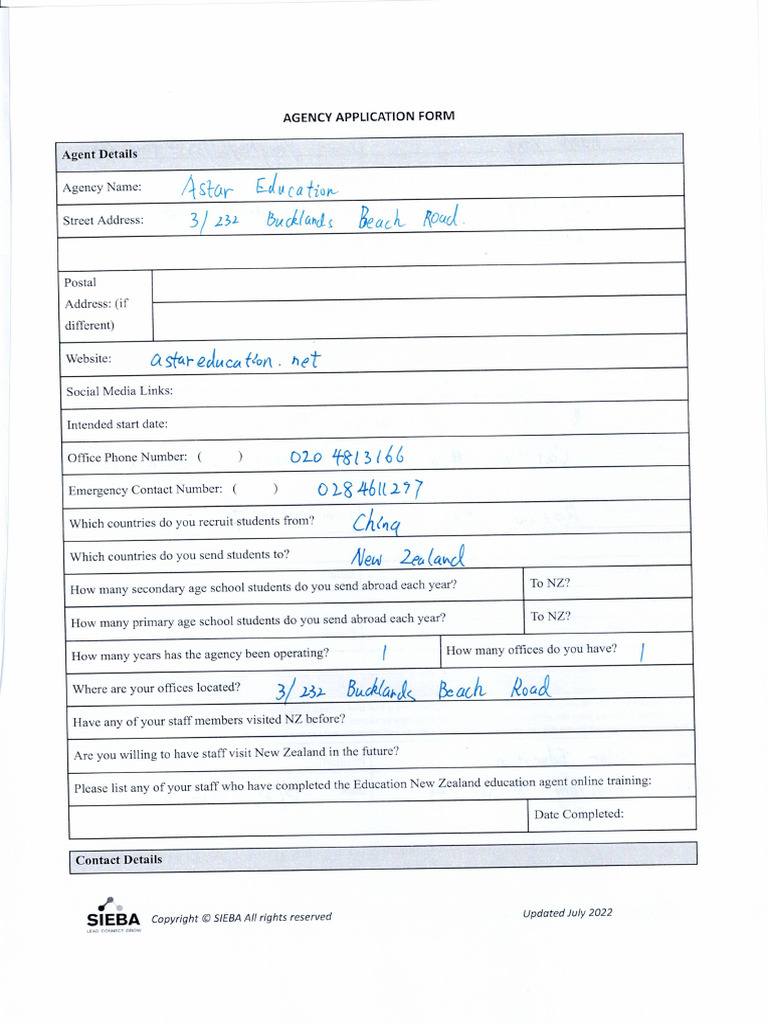 AGENCY APPLICATION FORM
Agent Details
Agency Name: Astar Education
Street Address: 3/232 Bucklands Beach Road.
Postal
Address: (if
different)
Website: astareducation.net
Social Media Links:
Intended start date:
Office Phone Number: ( ) 020 4813166
Emergency Contact Number: ( ) 028 4611297
Which countries do you recruit students from? China
Which countries do you send students to? New Zealand
How many secondary age school students do you send abroad each year? To NZ?
How many primary age school students do you send abroad each year? To NZ?
How many years has the agency been operating? 1 How many offices do you have? 1
Where are your offices located? 3/232 Bucklands Beach Road
Have any of your staff members visited NZ before?
Are you willing to have staff visit New Zealand in the future?
Please list any of your staff who have completed the Education New Zealand education agent online training:
Date Completed:
Contact Details
SIEBA Copyright © SIEBA All rights reserved Updated July 2022
LEAD CONNECT GROW